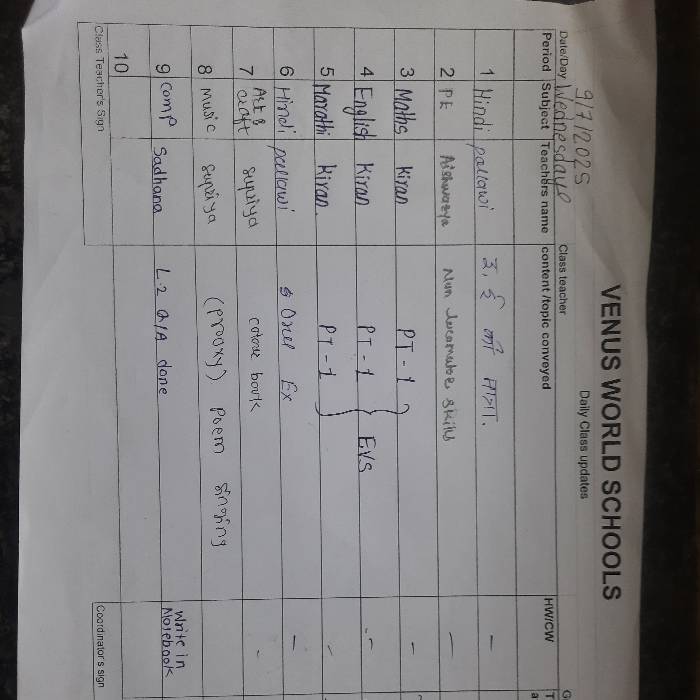 VENUS WORLD SCHOOLS
Daily Class updates
9/7/2025
Date/Day Wednesday Class teacher G
Period Subject Teachers name content /topic conveyed HW/CW T
1 Hindi pallavi इ, ई की मात्रा. -
2 PE Aishwarya Nun locomotor skills -
3 Maths Kiran PT-1 -
4 English Kiran PT-1 } EVS
5 Marathi Kiran. PT-1
6 Hindi pallavi Oral Ex -
7 Art & craft supriya colour book -
8 Music supriya (proxy) poem singing
9 comp Sadhana L.2 Q/A done Write in Notebook
10
Class Teacher's Sign Coordinator's sign